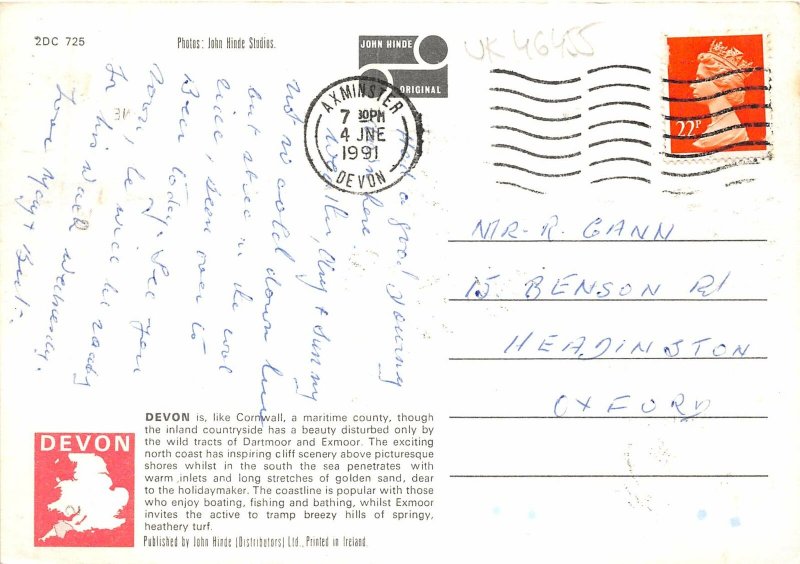 2DC 725
Photos: John Hinde Studios.
JOHN HINDE
ORIGINAL
UK 46455
AXMINSTER
7 30PM
4 JNE
1991
DEVON
22P
Had a good journey
down here.
Weather, Windy & Sunny
not so cold down here
but still in the cool
breeze, been over to
Beer today. See you
Soon, he will be ready
for his walk Wednesday.
Love May & Bert.
MR. R. GANN
15 BENSON Rd
HEADINGTON
OXFORD
DEVON is, like Cornwall, a maritime county, though
the inland countryside has a beauty disturbed only by
the wild tracts of Dartmoor and Exmoor. The exciting
north coast has inspiring cliff scenery above picturesque
shores whilst in the south the sea penetrates with
warm inlets and long stretches of golden sand, dear
to the holidaymaker. The coastline is popular with those
who enjoy boating, fishing and bathing, whilst Exmoor
invites the active to tramp breezy hills of springy,
heathery turf.
DEVON
Published by John Hinde (Distributors) Ltd., Printed in Ireland.